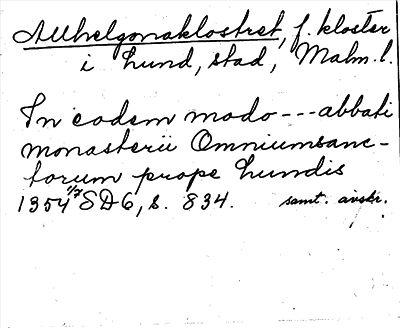 Allhelgonaklostret, f. kloster
i Lund, stad, Malm. l.
In eodem modo --- abbati
monasterii Omniumsanc-
torum prope Lundis
1354 1/7 SD6, s. 834. samt. avskr.